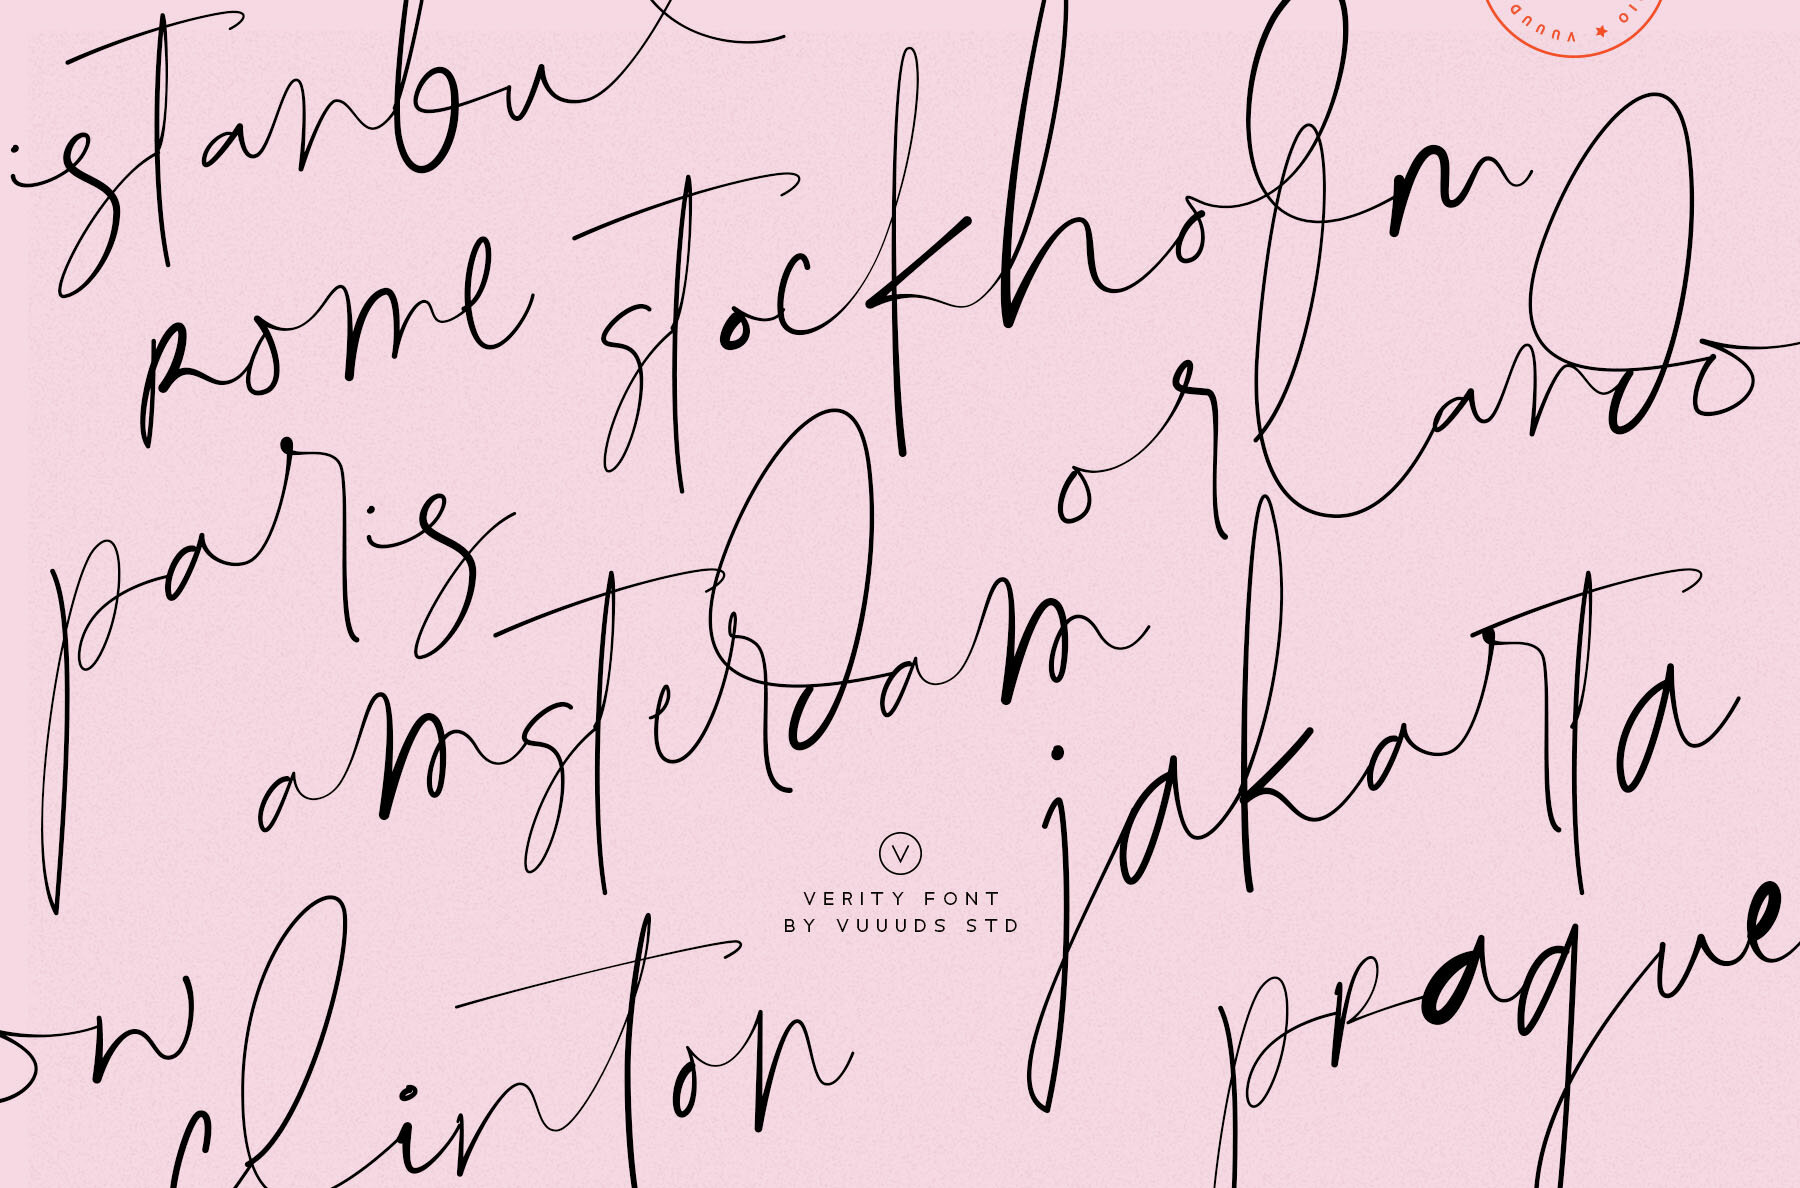 istanbu
VUUUD
rome
stockholm
orlando
paris
amsterdam
jakarta
VERITY FONT
BY VUUUDS STD
prague
on
clinton